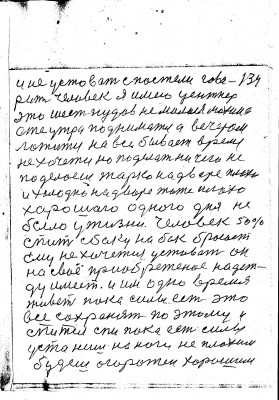 и не устоват с постели гово- 134
рит человек я имею центнер
это шест пудов не малая махина
от утра подниматя а вечером
ложити на вес бывает время
не хочетя но поделат ничего не
поделаеш жарко на дворе плохо
и холодно на дворе тоже плохо
хорошаго одного дня не
было у жизни. Человек 50%
спит збоку на бок бросает
ему не хочетця устават он
на своё приобретеное надеж-
ду имеет. и им одно время
живёт пока силы ест это
все сохранят по этому и
спитця спи пока ест силы
устаниш на ноги не плохим
будеш огорожен хорошим